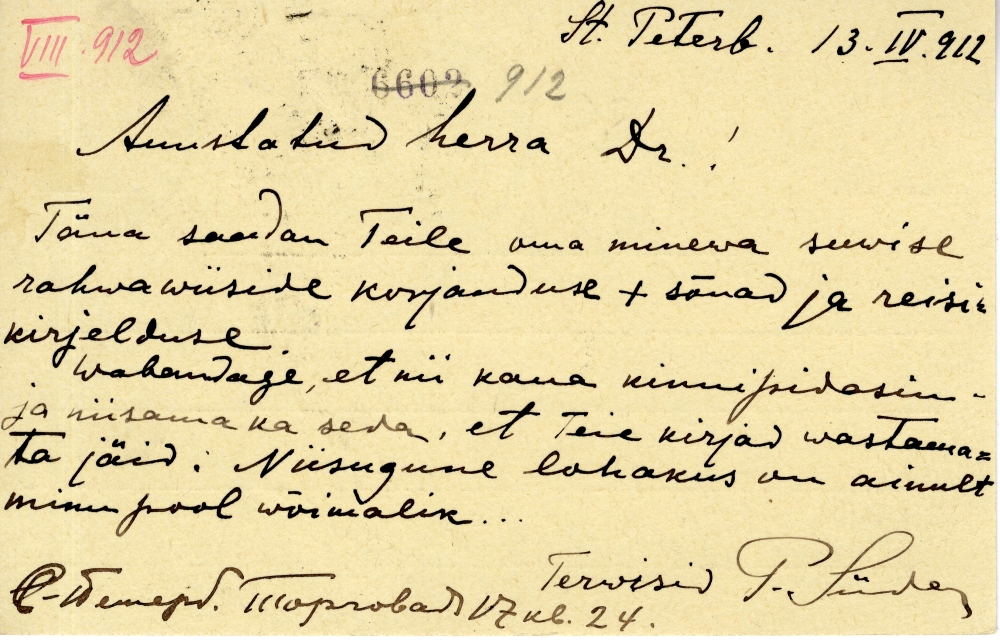 VIII. 912
St. Peterb. 13. IV. 912
6602 912
Auustatud herra Dr.!
Täna saadan Teile oma minewa suwise
rahwawiiside korjanduse + sõnad ja reisi-
kirjelduse
Wabandage, et nii kaua kinnipidasin -
ja niisama ka seda, et Teie kirjad wastama=
ta jäid: Niisugune lohakus on ainult
minu pool wõimalik...
Terwisid P. Süda
С-Петерб. Торговая 17 кв. 24.